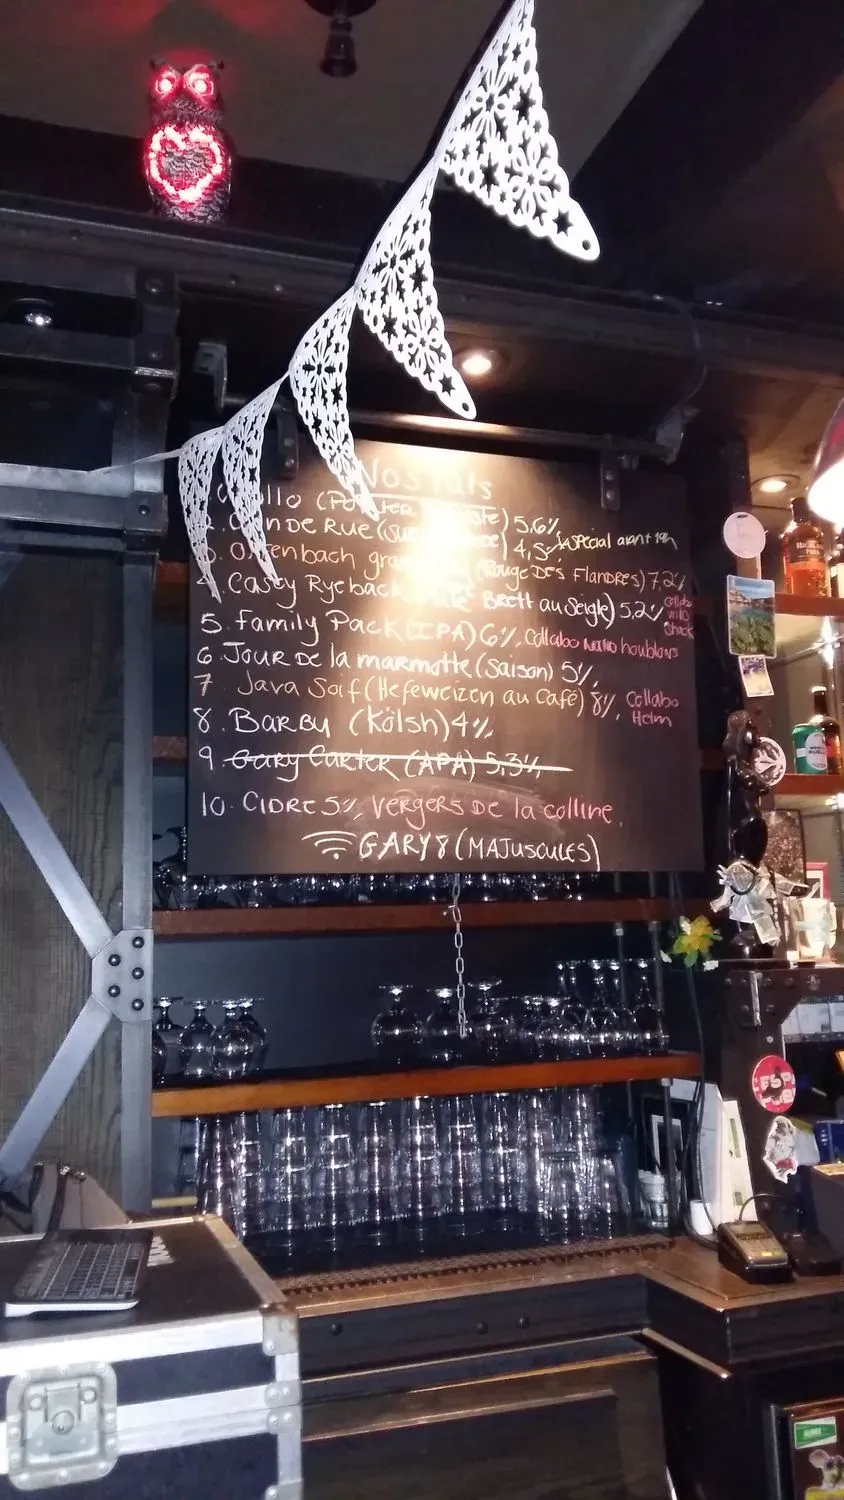 Nos fûts
(Porter
5,6%
Rue
4,5%
spécial avant 19h
3. Offenbach
(Rouge Des Flandres) 7,2%
4. Casey Ryeback
Brett au Seigle) 5,2% Collabo
Wild
Shack
5. Family Pack (IPA) 6%, Collabo houblons
6. Jour de la marmotte (Saison) 5%,
7. Java Soif (Hefeweizen au Café) 8%, Collabo
Helm
8. Barby (Kölsh) 4%
9. Gary Carter (APA) 5,3%
10. CIDRE 5%, Vergers De la colline,
GARY8 (MAJUSCULES)